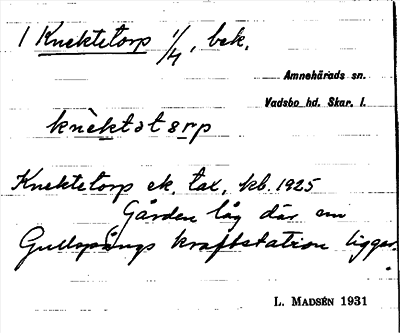 1 Knektetorp 1/4, bek.
Amnehärads sn.
Vadsbo hd. Skar. l.
knèktətɜrp
Knektetorp ek. tax. kb. 1925
Gården låg där nu
Gullspångs kraftstation ligger.
L. MADSÉN 1931